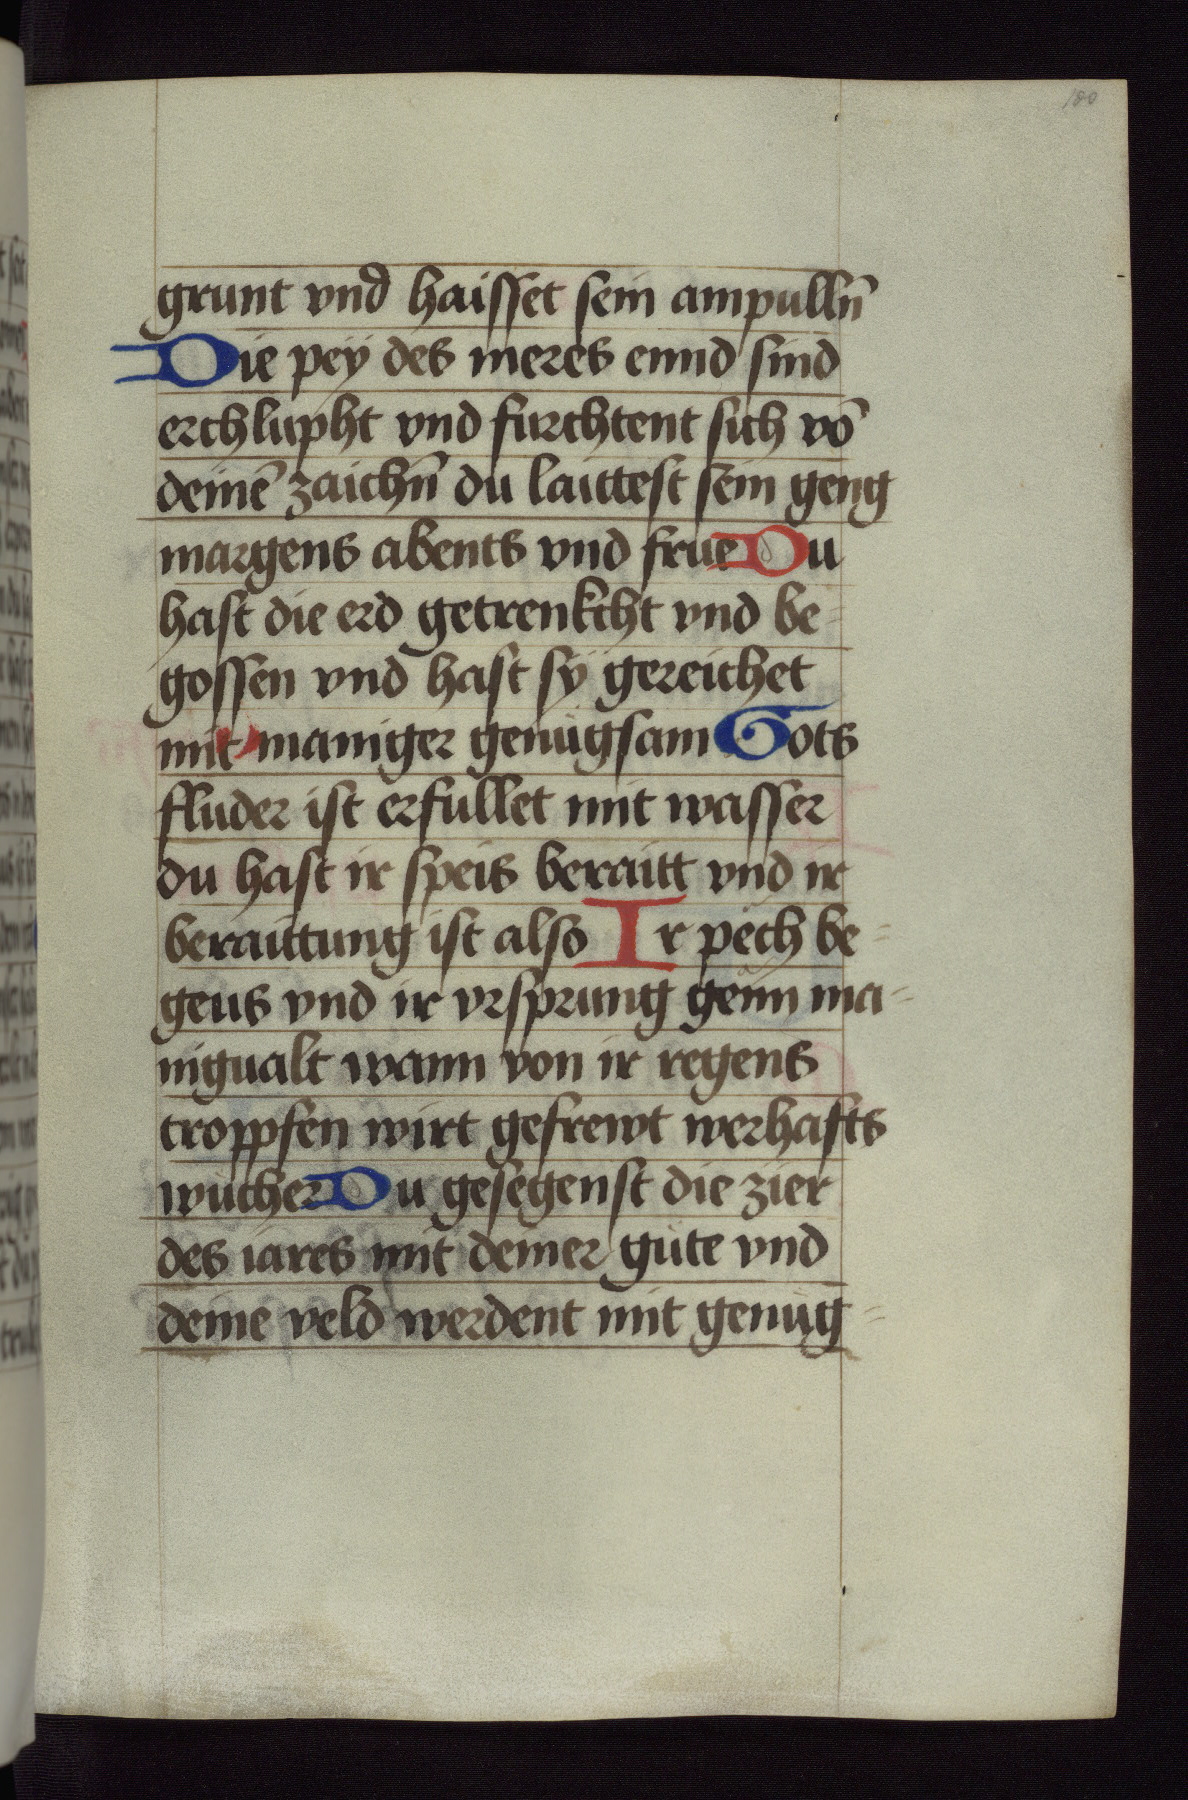 180
grunt vnd haisset sein ampulln̄
Die pey des meres ennd sind
erchlupht vnd furchtent sich vō
deinē zaichn̄ du laittest sein geng
margens abents vnd frue Du
hast die erd getrenkcht vnd be=
gossen vnd hast sy gereichet
mit maniger genugsam Gots
fluder ist erfullet mit wasser
du hast ir speis beraitt vnd ir
beraittung ist also Ir pech be=
geus vnd ir vrsprung genn ma=
nigualt wann von ir regens
troppfen wirt gefrewt werhafts
wucher Du gesegenst die zier
des iares mit deiner gute vnd
deine veld werdent mit genug=